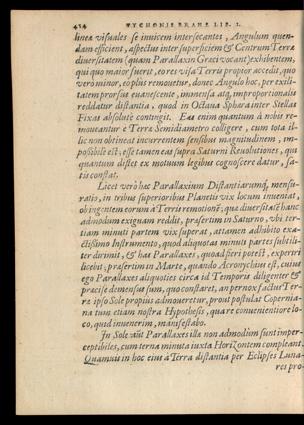 414 TYCHONIS BRAHE LIB. I.
lineæ visuales se invicem intersecantes, Angulum quen-
dam efficiunt, aspectus inter superficiem & Centrum Terræ
diversitatem (quam Parallaxin Græci vocant) exhibentem,
qui quo maior fuerit, eo res visa Terris propior accedit, quo
vero minor, eo plus removetur, donec Angulo hoc, per exili-
tatem prorsus evanescente, immensa atq; improportionalis
reddatur distantia, quod in Octava Sphæra inter Stellas
Fixas absolutè contingit. Eas enim quantum à nobis re-
moveantur e Terræ Semidiametro colligere, cum tota il-
lic non obtineat incurrentem sensibus magnitudinem, im-
possibile est, esse tamen eas supra Saturni Revolutiones, qui
quantum distet ex motuum legibus cognoscere datur, sa-
tis constat.
Licet verò hæc Parallaxium Distantiarumq, mensu-
ratio, in tribus superioribus Planetis vix locum inveniat,
ob ingentem eorum à Terris remotionẽ, quæ diversitatẽ hanc
admodum exiguam reddit, præsertim in Saturno, ubi ter-
tiam minuti partem vix superat, attamen adhibito exa-
ctissimo Instrumento, quod aliquotas minuti partes subtili-
ter dirimit, & has Parallaxes, quoad fieri potest, experiri
licebit; præsertim in Marte, quando Acronychius est, cuius
ego Parallaxes aliquoties circa id Temporis diligenter &
præcisè demensus sum, quo constaret, an pernox factus Ter-
ræ ipso Sole propius admoveretur, prout postulat Coperniá-
na tum etiam nostra Hypothesis, qua re convenientiore lo-
co, quid invenerim, manifestabo.
In Sole autẽ Parallaxes illæ non admodùm sunt imper-
ceptibiles, cum terna minuta iuxta Horizontem compleant.
Quamvis in hoc eius à Terra distantia per Eclipses Luna-
res pro-